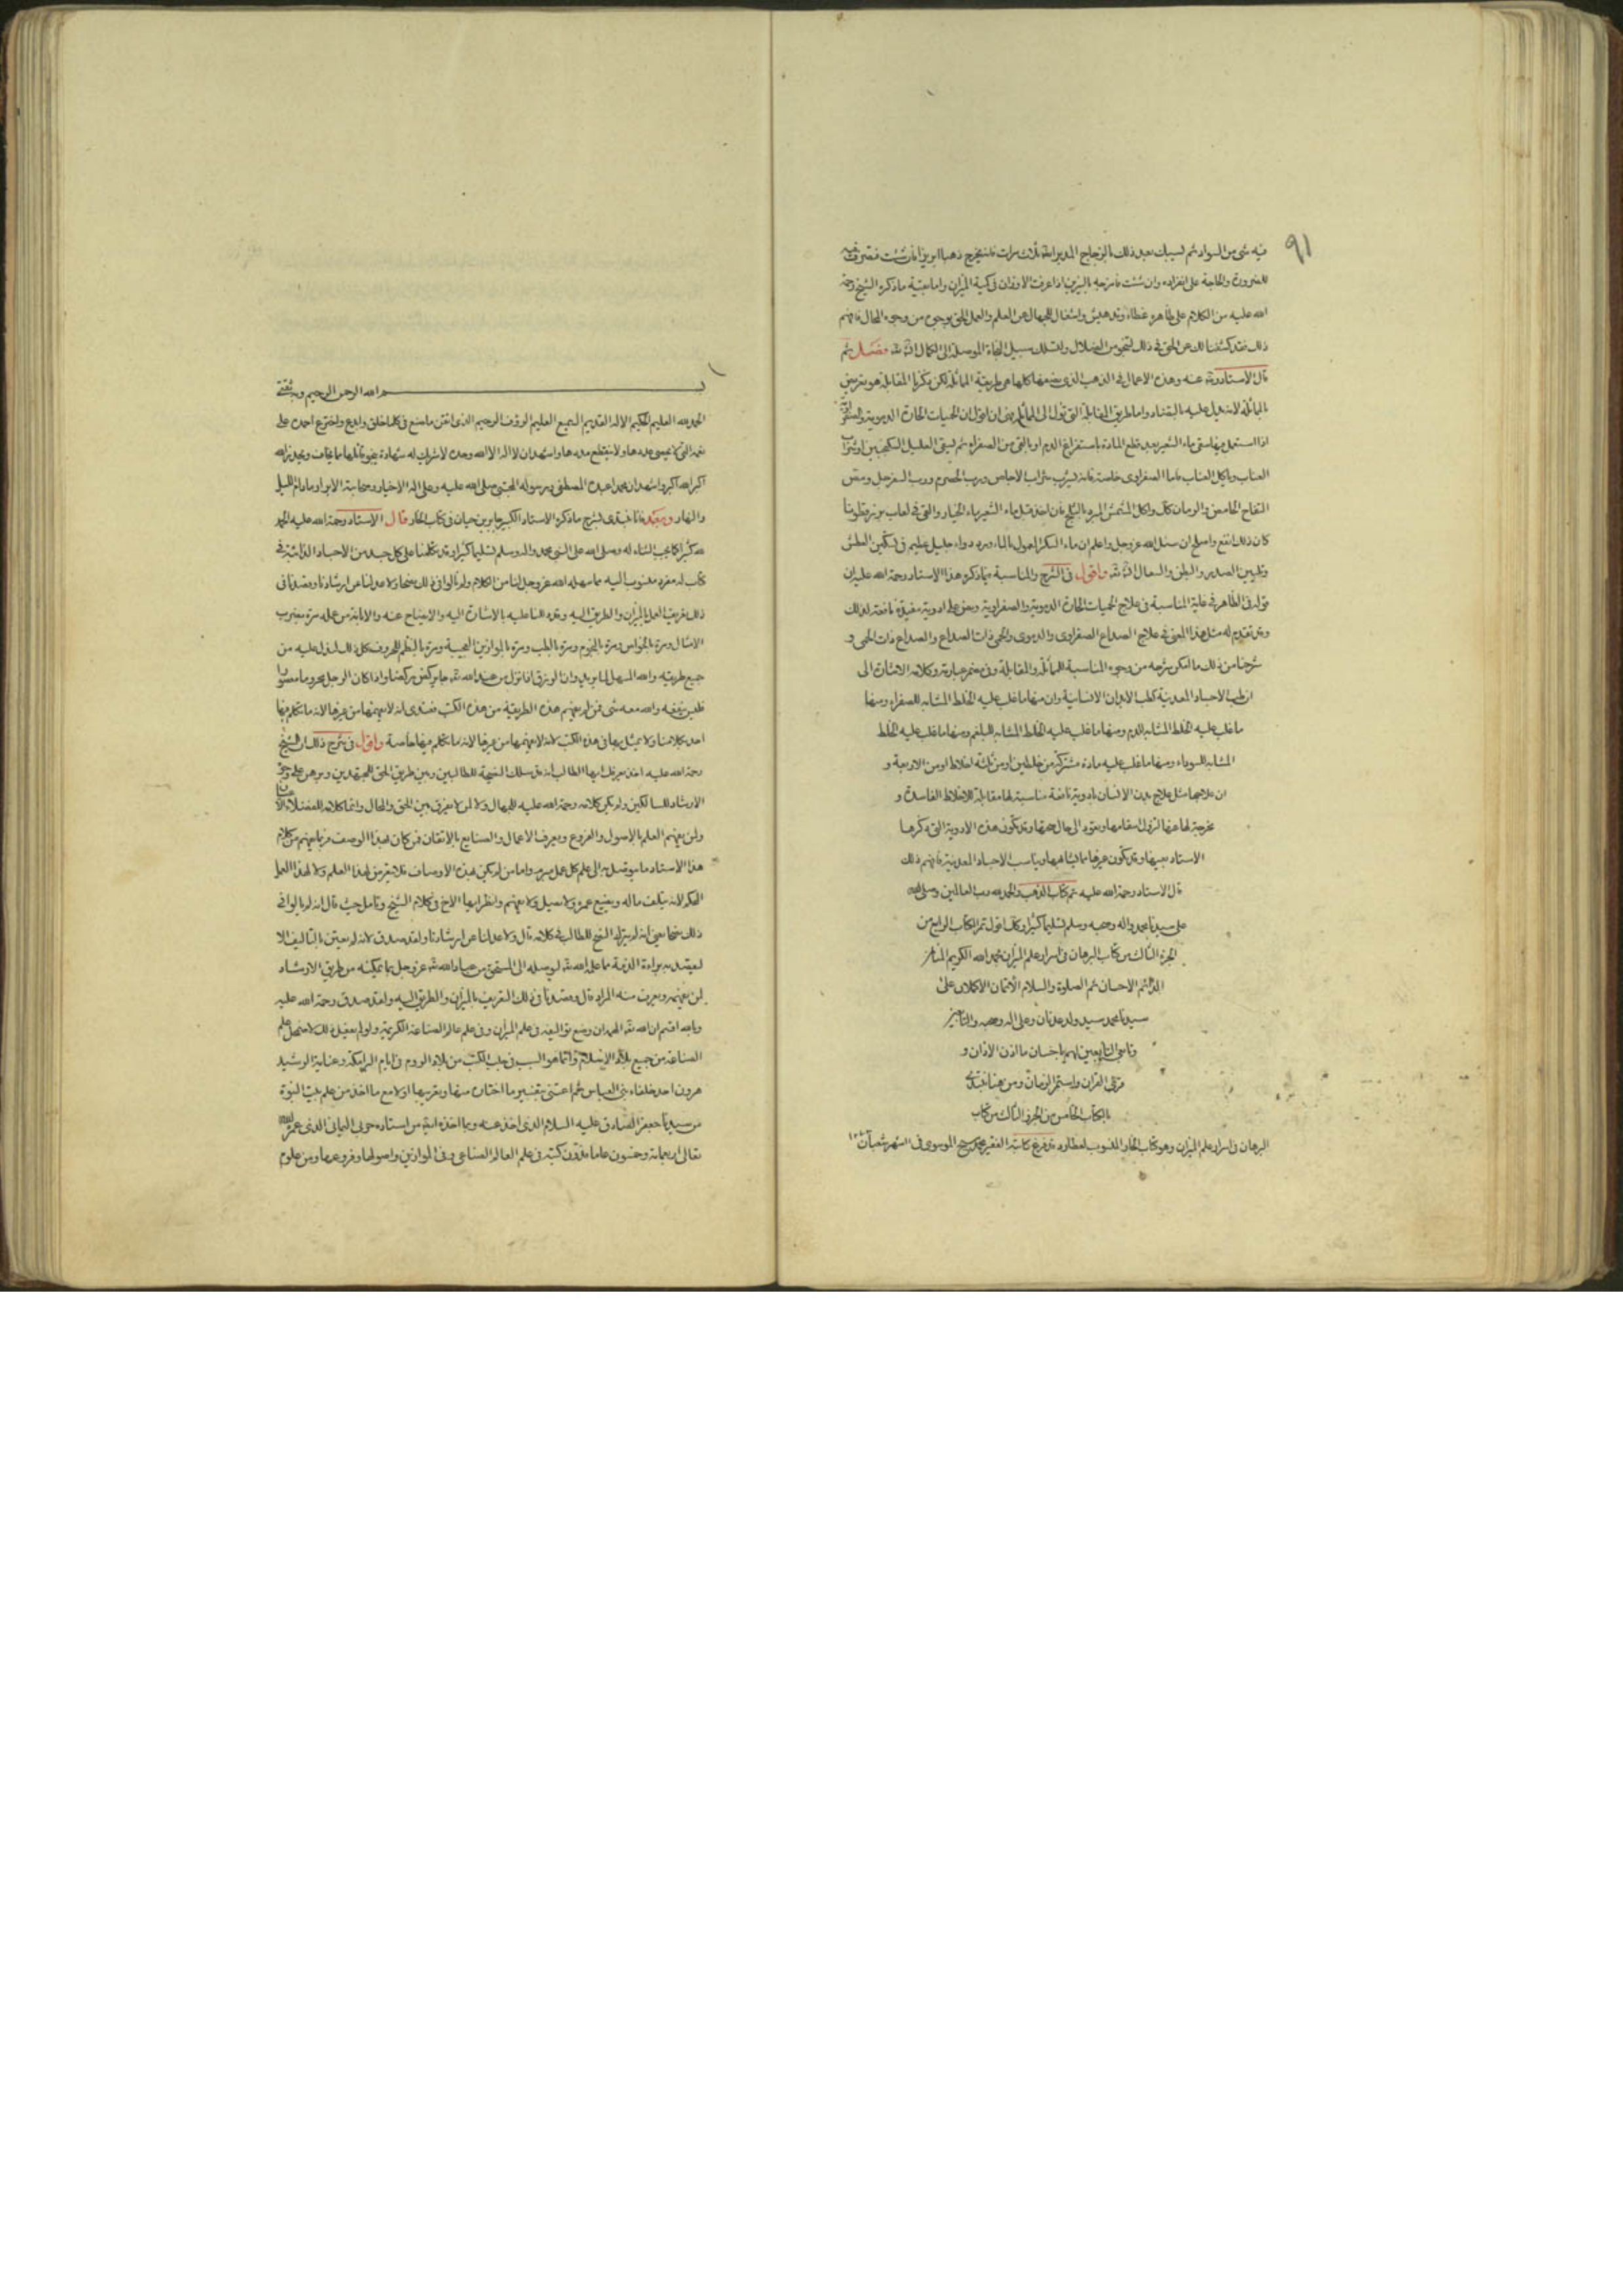 ٩١
فيه شى من السواد ثم يسبك بعد ذلك بالزجاج المدبر ايضا ثلاث مرات فانه يخرج ذهبا ابريزا فان شئت فصرفه فيه
للضرورة والحاجة على انفراده وان شئت فامزجه بالبزيز اذا عرفت الاوزان فى كمية الميزان واما بقية ما ذكره الشيخ رحمة
الله عليه من الكلام على ظاهره غطاء وتدهيش واشغال للجهال عن العلم والعمل الحق بوجوه من وجوه المحال فافهم
ذلك فقد كشفنا لك عن الحق فى ذلك لتنجو من الضلال ولتسلك سبيل النجاة الموصلة الى الكمال فصل ثم
قال الاستاد عنه وهذه الاعمال فى الذهب الذى منها كلها هى طريقة المماثلة لكن ذكرنا المقابلة هو تعريض
بالمماثلة لانه يدل عليه بالتضاد واما طريق المقابلة التى تؤل الى المماثلة فهى ان اقول ان الحميات الحارة الدموية والصفراوية
اذا استعمل فيها سقى ماء الشعير بعد قطع المادة باستفراغ الدم او بالقى من الصفراء ثم يسقى العليل السكنجبين او شراب
العناب وياكل العناب فاما الصفراوى خاصة فانه يشرب شراب الاجاص ورب الحصرم ورب السفرجل ومص
التفاح الحامض والرمان كل واكل المشمش المبرد بالثلج فان اخذ قبل ماء الشعير ماء الخيار والقى فى لعاب بزر قطونا
كان ذلك انفع واصلح ان شاء الله عز وجل واعلم ان ماء السكر المعمول بالماء ورد دواء جليل عظيم فى تسكين العطش
وتليين الصدر والبطن والسعال واقول فى الشرح والمناسبة فيما ذكره هذا الاستاد رحمة الله عليه ان
قوله فى الظاهر فى غاية المناسبة فى علاج الحميات الحارة الدموية والصفراوية وبعض على ادوية مفيدة نافعة لذلك
وقد تقدم له مثل هذا المعنى فى علاج الصداع الصفراوى والدموى والحمى ذات الصداع والصداع ذات الحمى و
شرحنا من ذلك ما امكن شرحه من وجوه المناسبة للمماثلة والمقابلة وفى ضمن عبارته وكلامه الاشارة الى
ان طب الاجساد المعدنية كطب الابدان الانسانية وان منها ما غلب عليه الخلط المشابه للصفراء ومنها
ما غلب عليه الخلط المشابه للدم ومنها ما غلب عليه الخلط المشابه للبلغم ومنها ما غلب عليه الخلط
المشابه للسوداء ومنها ما غلب عليه مادة مشتركة من خلطين او من ثلثة اخلاط او من الاربعة و
ان علاجها مثل علاج بدن الانسان بادوية نافعة مناسبة لها مقابلة للاخلاط الفاسدة و
مخرجة لها عنها لتزول اسقامها وتعود الى حال صحتها وقد تكون هذه الادوية التى ذكرها
الاستاد بعينها وقد تكون غيرها مما يشابهها ويناسب الاجساد المعدنية فافهم ذلك
قال الاستاد رحمة الله عليه تم كتاب الذهب والحمد لله رب العالمين وصلى الله
على سيدنا محمد واله وصحبه وسلم تسليما كثيرا وكذلك اقول تم الكتاب الرابع من
الجزء الثالث من كتاب البرهان فى اسرار علم الميزان بحمد الله الكريم المنان
الدائم الاحسان ثم الصلوة والسلام الاتمان الاكملان على
سيدنا محمد سيد ولد عدنان وعلى اله وصحبه والتابعين
وتابعى التابعين لهم باحسان ما اذن الاذان و
قرئ القران واستمر الزمان ومن هنا نبتدى
بالكتاب الخامس من الجزء الثالث من كتاب
البرهان فى اسرار علم الميزان وهو كتاب الحار المنسوب لعطارد قد فرغ كاتبه الفقير محمد الموسوى فى شهر شعبان

بسم الله الرحمن الرحيم وبه ثقتى
الحمد لله العليم الحكيم الاله القديم السميع العليم الرؤف الرحيم الذى اتقن ما صنع فى كلما خلق وابدع واخترع احمده على
نعمه التى لا يحصى عددها ولا ينقطع مددها واشهد ان لا اله الا الله وحده لا شريك له شهادة ينجو قائلها مما يخاف ويحذر الله
اكبر الله اكبر واشهد ان محمدا عبده المصطفى ورسوله المجتبى صلى الله عليه وعلى اله الاخيار وصحابته الابرار ما دام الليل
والنهار وبعد فانا نبتدى بشرح ما ذكره الاستاد الكبير جابر بن حيان فى كتاب الحار قال الاستاد رحمة الله عليه الحمد
لله كثيرا كما يجب الثناء له وصلى الله على النبى محمد واله وسلم تسليما كثيرا قد تكلمنا على كل جسد من الاجساد الذائبة فى
كتاب له مفرد منسوب اليه مما سهله الله عز وجل لنا من الكلام ولم نالوا فى ذلك نصحا ولا عدلنا عن ارشادنا وقصدنا فى
ذلك تعريف العمل بالميزان والطريق اليه وقد دللنا عليه بالاشارة اليه والايضاح عنه والابانة من عمله مرة بضرب
الامثال ومرة بالخواص ومرة بالنجوم ومرة بالطب ومرة بالموازين العجيبة ومرة بالنظم للحروف كل ذلك ليدل عليه من
جميع طريقه والله المسهل لما يريد وان الرزق انما نزل من عند الله تعالى واذا كان الرجل محروما
فليس ينفعه والله معه شى فمن لم يفهم هذه الطريقة من هذه الكتب فعندى انه لا يفهمها من غيرها لانه ما تكلم فيها
احد بكلامنا ولا تمثيل بها فى هذه الكتب لانه لا يفهمها من غيرها لانه ما تكلم فيها خاصة واقول فى شرح ذلك ان الشيخ
رحمة الله عليه اخذ يعرفك ايها الطالب انه قد سلك النصيحة للطالبين وبين طريق الحق للمجتهدين وبرهن على وجه
الارشاد للسالكين ولم يكن كلامه رحمة الله عليه للجهال ولا لمن لا يفرق بين الحق والمحال وانما كلامه للفضلاء
ولمن يفهم العلم بالاصول والفروع ويعرف الاعمال والصنايع بالاتقان فمن كان بهذا الوصف فربما يفهم من كلام
هذا الاستاد ما يتوصل به الى علم كل عمل مبرم واما من لم يكن بهذه الاوصاف فلا يتعرض لهذا العلم ولا لهذا العمل
المكرم لانه يتلف ماله ويضيع عمره ولا يصل ولا يفهم وانظر ايها الاخ فى كلام الشيخ وتامل حيث قال انه لم يالوا فى
ذلك نصحا يعنى انه لم يترك النصح للطالب فى كلامه قال ولا عدلنا عن ارشادنا ولقد صدق لانه لم يعتن بالتاليف الا
ليقصد به براءة الذمة مما علمه الله تعالى ليوصله الى المستحق من عباد الله تعالى عز وجل بما يمكنه من طريق الارشاد
لمن يفهمه ويعرف منه المراد قال وقصدنا فى ذلك التعريف بالميزان والطريق اليه ولقد صدق رحمة الله عليه
وبالله اقسم ان الله تعالى الهمه ان وضع تواليفه فى علم الميزان وفى علم عالم الصناعة الكريمة ولولم يفعل ذلك لاضمحل علم
الصناعة من جميع بلاد الاسلام وانما هو السبب فى جلب الكتب من بلاد الروم فى ايام البرامكة وعناية الرشيد
هرون احد خلفاء بنى العباس ثم اعتنى بتفسير ما اختاره منها وتعريبها اولا مع ما اخذ من علم بيت النبوة
من سيدنا جعفر الصادق عليه السلام الذى اخذ عنه وبما اخذه ايضا من استاده حربى اليمانى الذى عمره الله
تعالى اربعمائة وخمسون عاما فدون كتبه فى علم العالم الصناعى وفى الموازين واصولها وفروعها ومن علوم